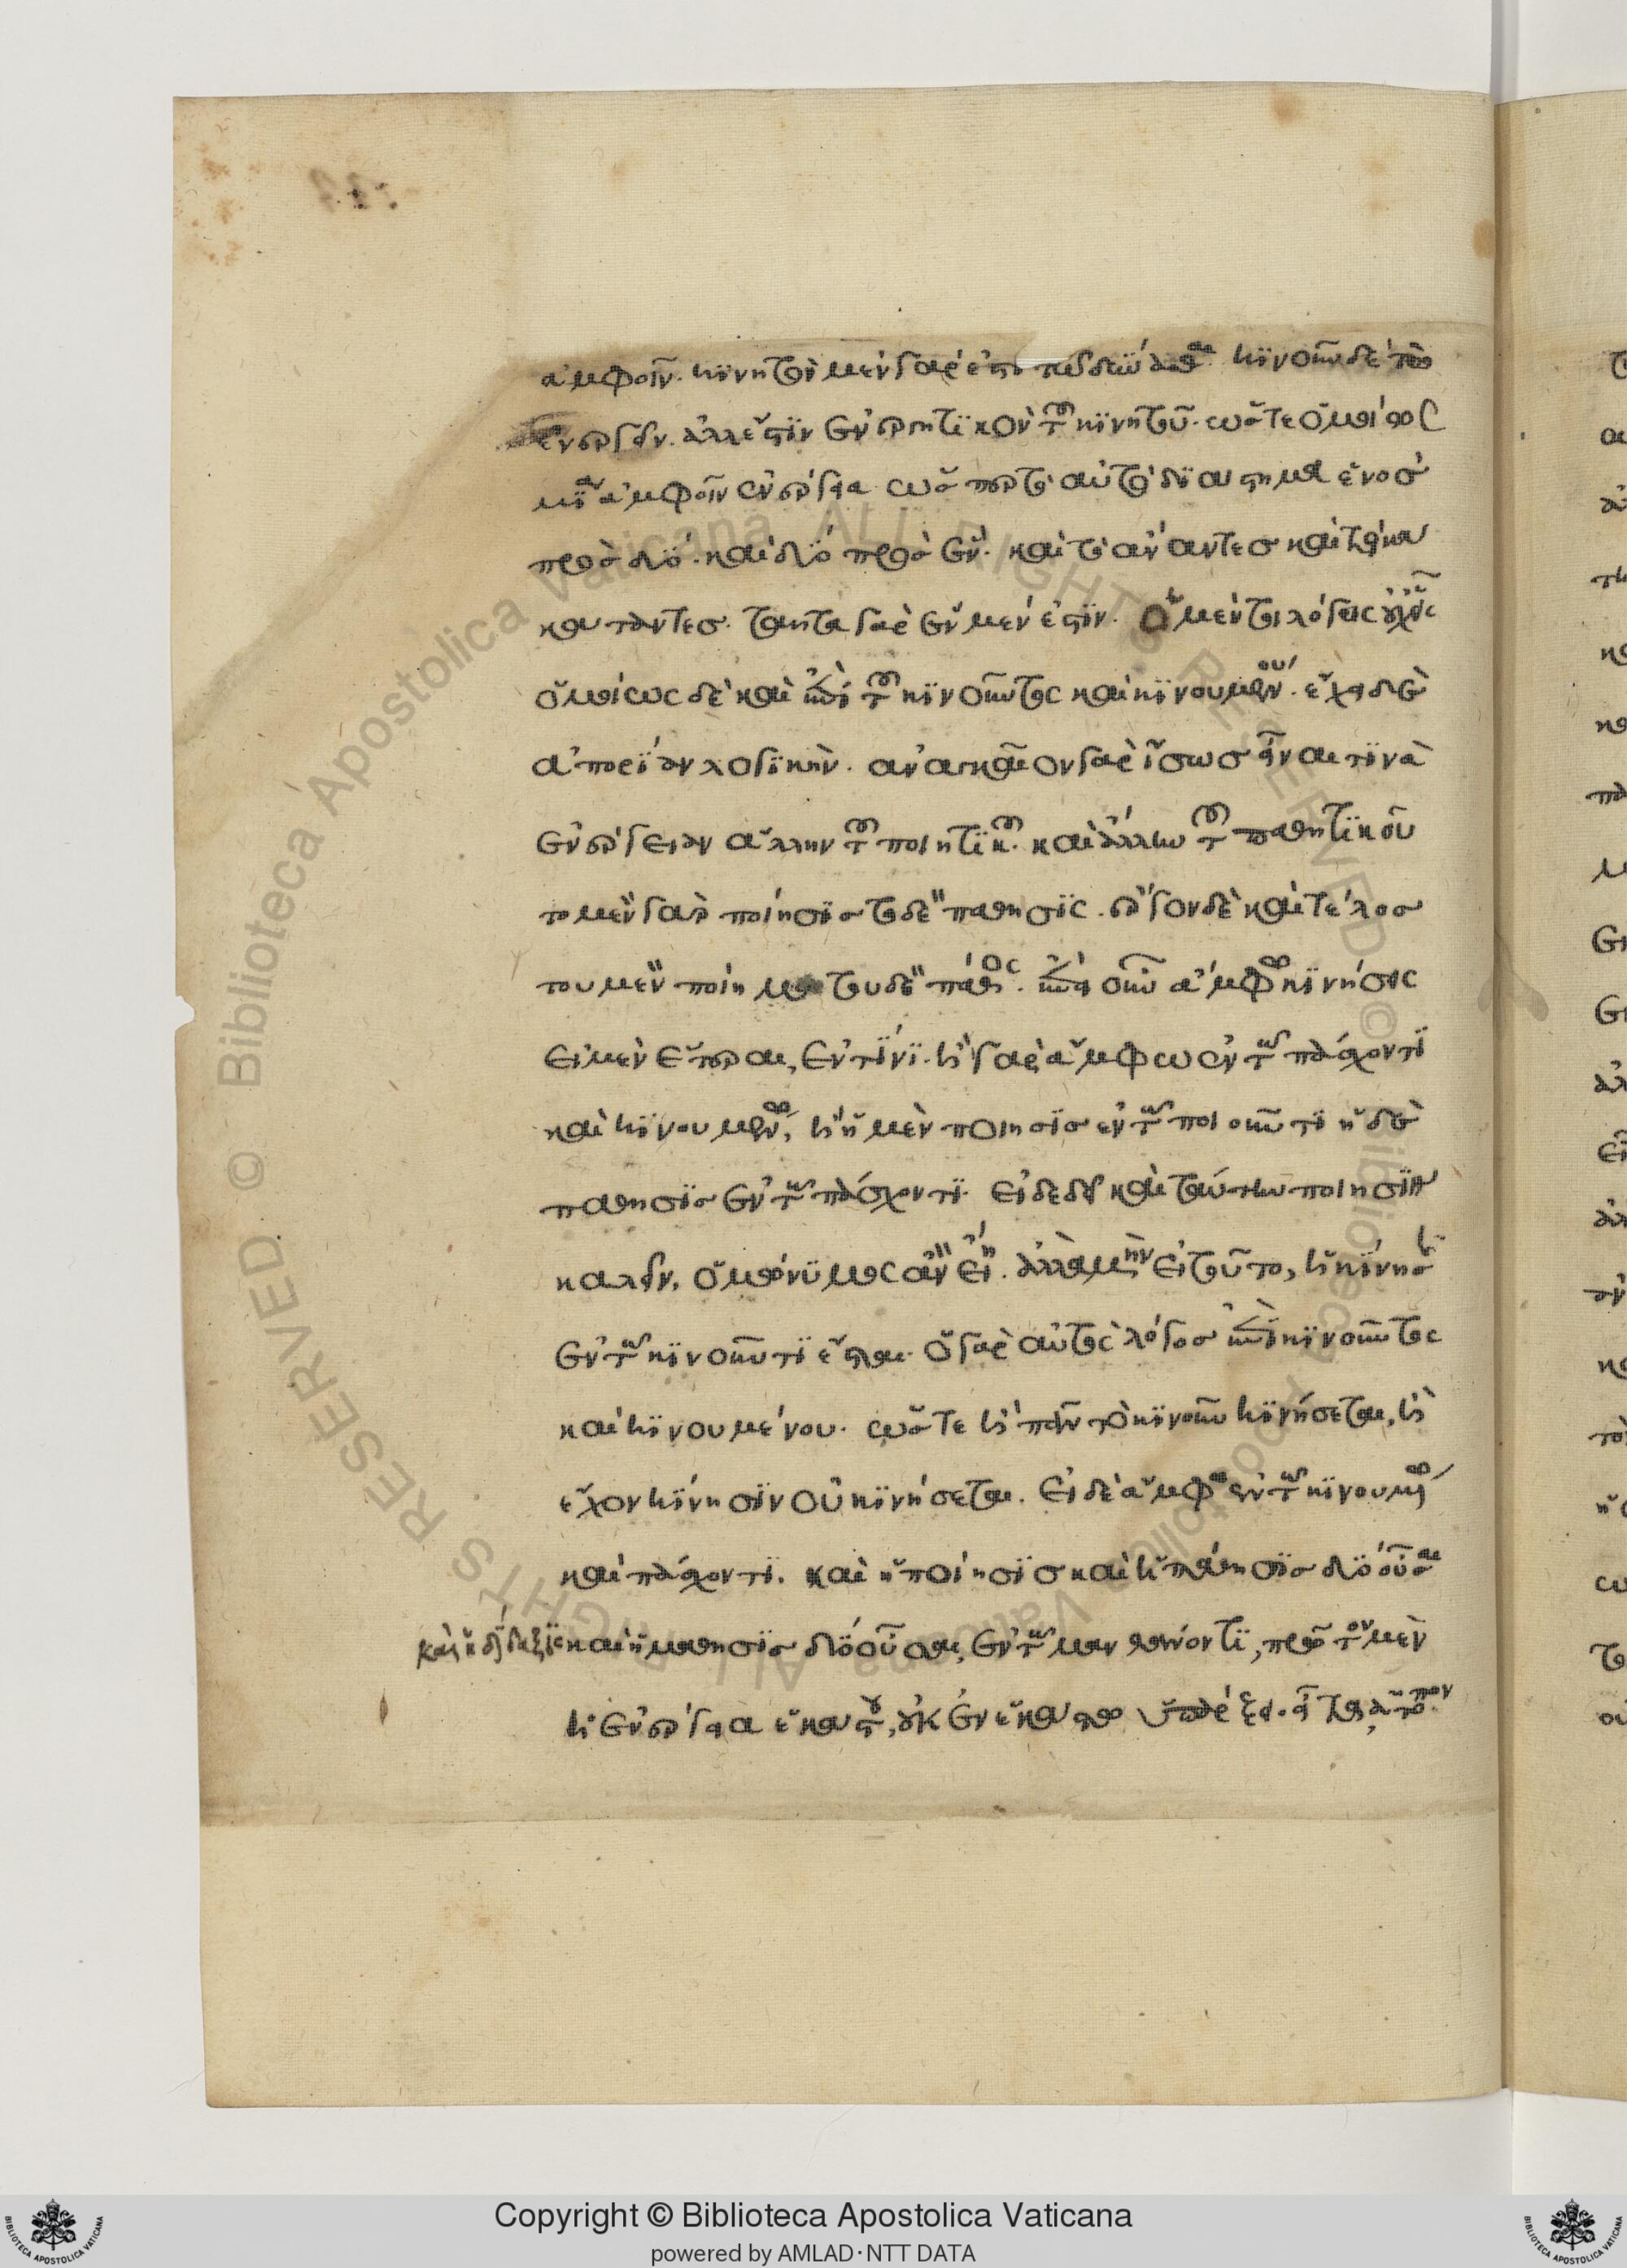 ἀμφοῖν. κινητὸν μὲν γάρ ἐστι τῶ δύνασθαι. κινοῦν δὲ τῶ
ἐνεργεῖν. ἀλλ' ἔστιν ἐνεργητικὸν τοῦ κινητοῦ. ὥστε ὁμοίως
μία ἀμφοῖν ἐνέργεια ὥσπερ τὸ αὐτὸ διάστημα ἑνὸς
πρὸς δύο. καὶ δύο πρὸς ἕν. καὶ τὸ ἄναντες καὶ τὸ
κάταντες. ταῦτα γὰρ ἓν μέν ἐστιν. ὁ μέντοι λόγος οὐχ εἷς
ὁμοίως δὲ καὶ ἐπὶ τοῦ κινοῦντος καὶ κινουμένου. ἔχει δὲ
ἀπορίαν λογικήν. ἀναγκαῖον γὰρ ἴσως εἶναι τινὰ
ἐνέργειαν ἄλλην τοῦ ποιητικοῦ. καὶ ἄλλην τοῦ παθητικοῦ
τὸ μὲν γὰρ ποίησις τὸ δὲ πάθησις. ἔργον δὲ καὶ τέλος
τοῦ μὲν ποίημα τοῦ δὲ πάθος. ἐπεὶ οὖν ἄμφω κινήσεις
εἰ μὲν ἕτεραι, ἐν τίνι. ἢ γὰρ ἄμφω ἐν τῶ πάσχοντι
καὶ κινουμένω, ἢ ἡ μὲν ποίησις ἐν τῶ ποιοῦντι ἡ δὲ
πάθησις ἐν τῶ πάσχοντι. εἰ δὲ δεῖ καὶ ταύτην ποίησιν
καλεῖν, ὁμώνυμος ἂν εἴη. ἀλλὰ μὴν εἰ τοῦτο, ἡ κίνησις
ἐν τῶ κινοῦντι ἔσται. ὁ γὰρ αὐτὸς λόγος ἐπὶ κινοῦντος
καὶ κινουμένου. ὥστε ἢ πᾶν τὸ κινοῦν κινήσεται, ἢ
ἔχον κίνησιν οὐ κινήσεται. εἰ δὲ ἄμφω ἐν τῶ κινουμένω
καὶ πάσχοντι. καὶ ἡ ποίησις καὶ ἡ πάθησις δύο οὖσαι
καὶ ἡ δίδαξις καὶ ἡ μάθησις δύο οὖσαι, ἐν τῶ μανθάνοντι, πρῶτον μὲν
ἡ ἐνέργεια ἑκάστου, οὐκ ἐν ἑκάστω ὑπάρξει. εἶτα ἄτοπον